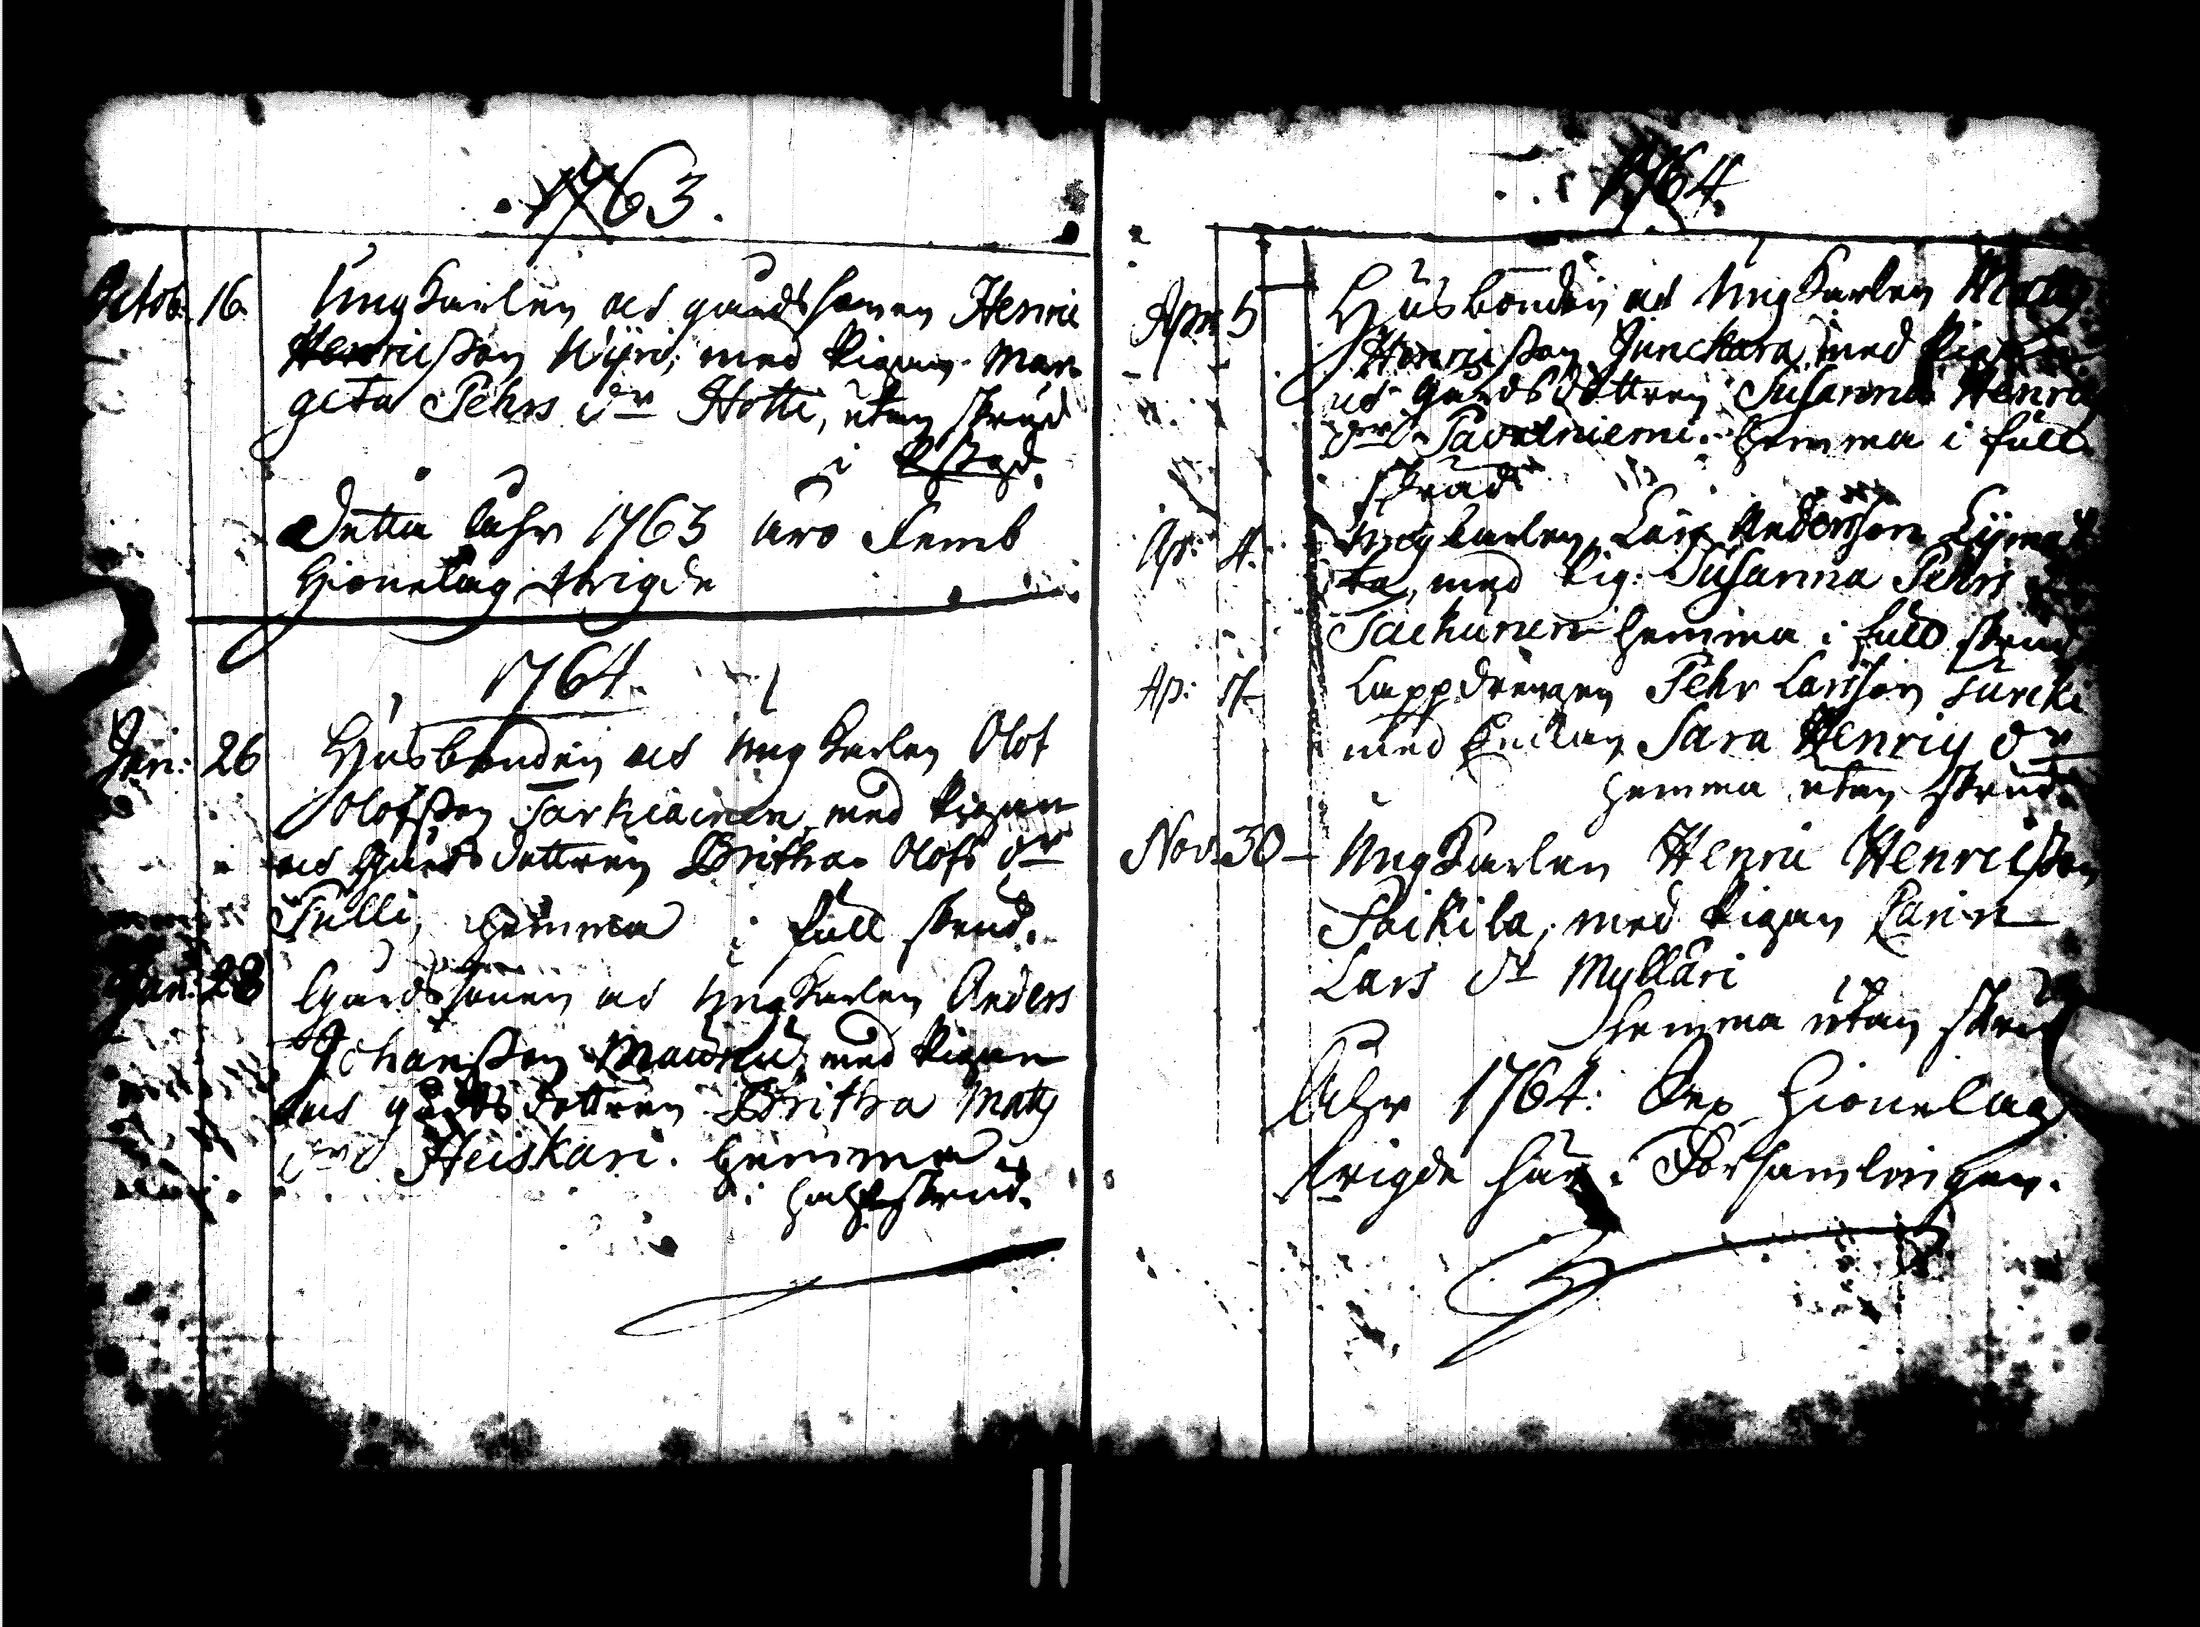 1763.
Octob. 16. Ungkarlen och gårdssonen Henric
Henricsson Kyrö; med Pigan Mar
geta Pehrs dr Hotti, utan skrud
i
Detta Åhr 1763 äro Femb
Hionelag wrigde
1764.
Jan: 26 Husbonden och Ungkarlen Olof
Olofsson Tarkiainen, med Pigan
och Gårdsdottren Britha Olofs dr
Tulli, hemma i full skrud.
Jan: 28 Gårdssonen och Ungkarlen Anders
Johansson Maunu, med Pigan
och gårdsdottren Britha Mats
dr Heiskari. hemma
i skrud.
1764.
Apr. 5 Husbonden och Ungkarlen Mats
Henricsson Junckara med Pigan
och Gårdsdottren Susanna Henrics
dr Pavalniemi. hemma i full
skrud
Ap: 4. Ungkarlen Lars Andersson Lyma
ta, med Pig: Susanna Pehrs
hemma i full skrud
Ap: Lappdrengen Pehr Larsson Surcki
med Enckan Sara Henrics dr
hemma utan skrud.
Nov. 30 Ungkarlen Henric Henricsson
Poikila, med Pigan Carin
Lars dr Mylläri
hemma utan skrud
Åhr 1764: Sex Hionelag
wrigde här i Församlingen.